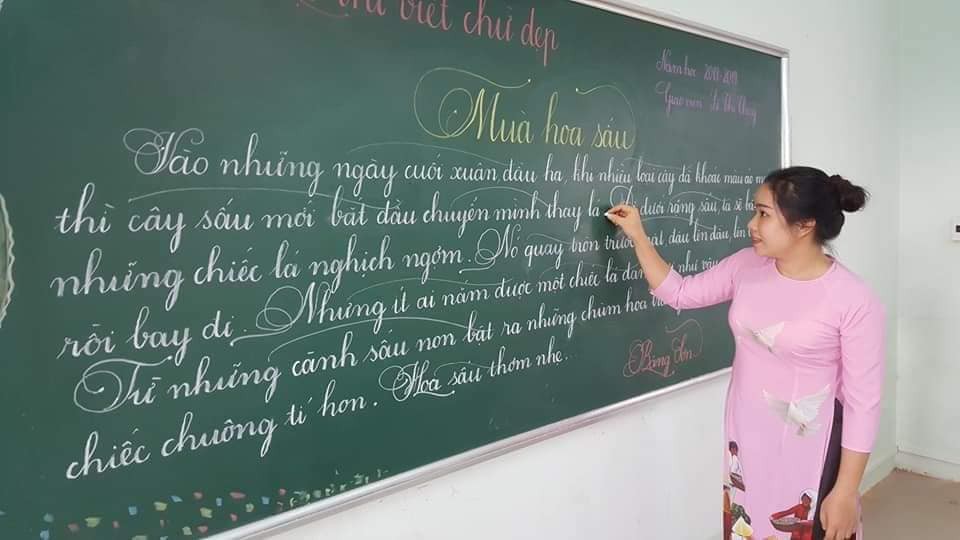 thi viết chữ đẹp
Năm học 2018-2019
Giáo viên
Mùa hoa sấu
Vào những ngày cuối xuân đầu hạ, khi nhiều loài cây đã khoác màu áo
thì cây sấu mới bắt đầu chuyển mình thay lá. dưới rặng sấu, ta sẽ
những chiếc lá nghịch ngợm. Nó quay tròn trước mặt, đậu lên đầu, lên
rồi bay đi. Nhưng ít ai nắm được một chiếc lá như vậy
Từ những cành sấu non bật ra những chùm hoa
chiếc chuông tí hon. Hoa sấu thơm nhẹ...
Băng Sơn